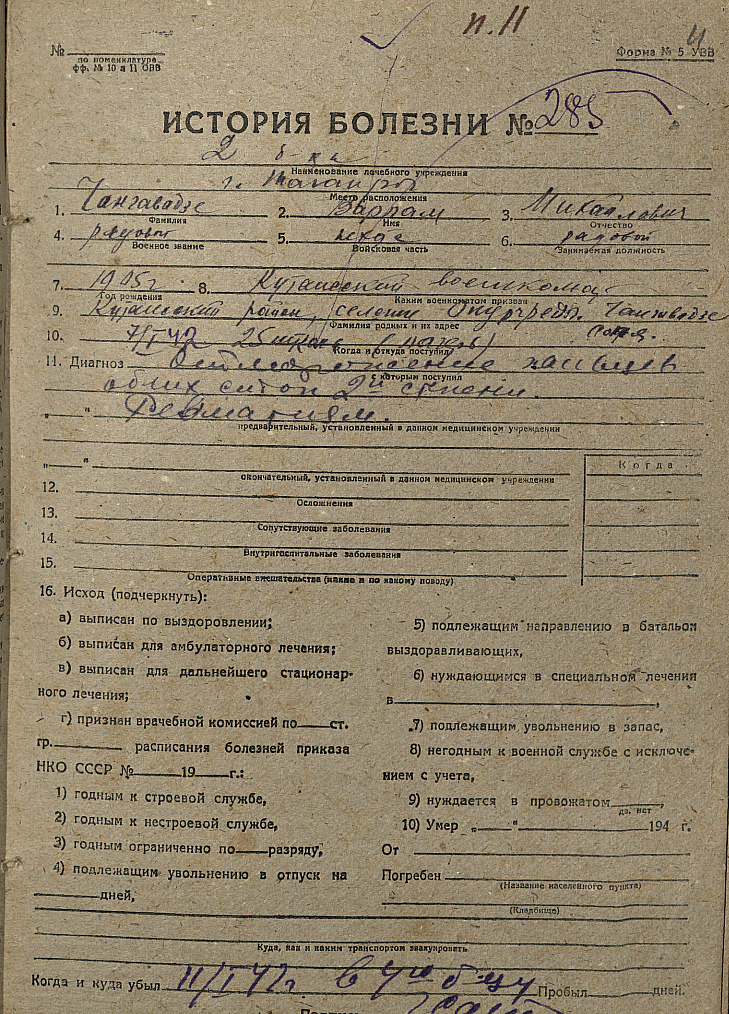 п. 11
4
№
по номенклатуре
фф. № 10 и 11 ОВВ
Форма № 5 УВВ
ИСТОРИЯ БОЛЕЗНИ № 285
2
Наименование лечебного учреждения
г. Таганрог
Место расположения
1. Чангавадзе 2. Варлам 3. Михайлович
Фамилия Имя Отчество
4. рядовой 5. 6. рядовой
Военное звание Войсковая часть Занимаемая должность
7. 1905 г 8. Кутаисский военкомат
Год рождения Каким военкоматом призван
9. Кутаисский район, селении Чангавадзе
Фамилия родных и их адрес
10. 7/I 42
Когда и откуда поступил
11. Диагноз пальцев
с которым поступил
обеих стоп 2ой степени.
" " Ревматизм.
предварительный, установленный в данном медицинском учреждении
Когда
„ "
окончательный, установленный в данном медицинском учреждении
12.
Осложнения
13.
Сопутствующие заболевания
14.
Внутригоспитальные заболевания
15.
Оперативные вмешательства (какие и по какому поводу)
16. Исход (подчеркнуть):
а) выписан по выздоровлении;
б) выписан для амбулаторного лечения;
в) выписан для дальнейшего стационар-
ного лечения;
г) признан врачебной комиссией по ст.
гр. расписания болезней приказа
НКО СССР № 19 г.:
1) годным к строевой службе,
2) годным к нестроевой службе,
3) годным ограниченно по разряду,
4) подлежащим увольнению в отпуск на
дней,
5) подлежащим направлению в батальон
выздоравливающих,
6) нуждающимся в специальном лечении
в ,
7) подлежащим увольнению в запас,
8) негодным к военной службе с исключе-
нием с учета,
9) нуждается в провожатом ,
да, нет
10) Умер „ " 194 г.
От
Погребен
(Название населенного пункта)
(Кладбище)
Куда, как и каким транспортом эвакуировать
Когда и куда убыл 11/I 42г в Пробыл дней.